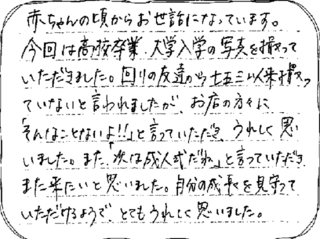 赤ちゃんの頃からお世話になっています。
今回は高校卒業、大学入学の写真を撮って
いただきました。回りの友達から七五三以来撮って
ていないと言われましたが、お店の方々に
「そんなことないよ!!」と言っていただき、うれしく思
いました。また「次は成人式だね」と言っていただき
また来たいと思いました。自分の成長を見守って
いただけるようで、とてもうれしく思いました。